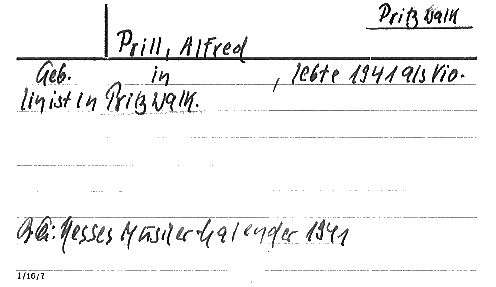 Pritzwalk
Prill, Alfred
Geb. in , lebte 1941 als Vio-
linist in Pritzwalk.
Hesses Musiker-Kalender 1941
1/16/7